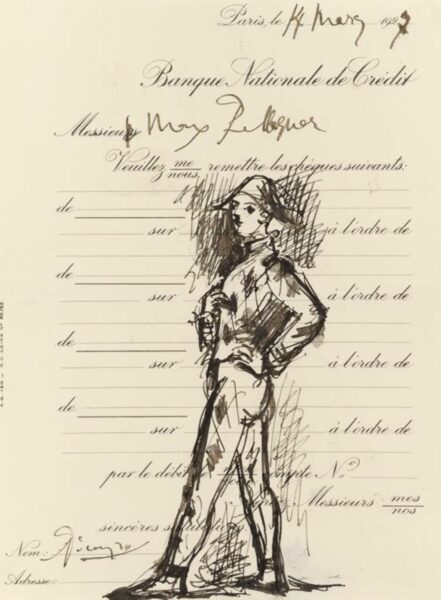 Paris, le 14 Mars 1927
Banque Nationale de Crédit
Messieurs Max Pellequer
Veuillez me
nous remettre les chèques suivants:
de
sur à l'ordre de
de
sur à l'ordre de
de
sur à l'ordre de
de
sur à l'ordre de
par le débit de compte No
Messieurs mes
nos
sincères
Nom: Picasso
Adresse: